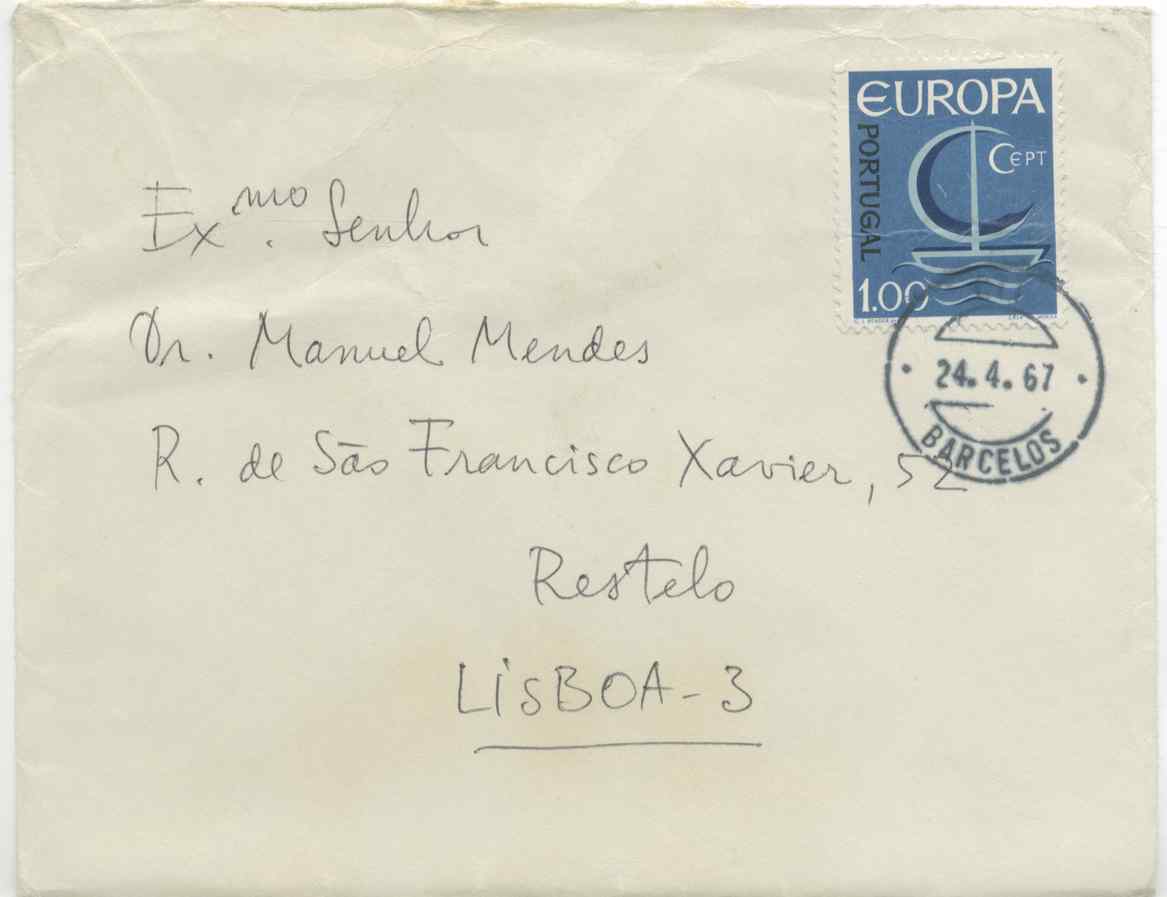 EUROPA
CEPT
PORTUGAL
1.00
24.4.67
BARCELOS
Exmo. Senhor
Dr. Manuel Mendes
R. de São Francisco Xavier, 52
Restelo
LiSBOA-3